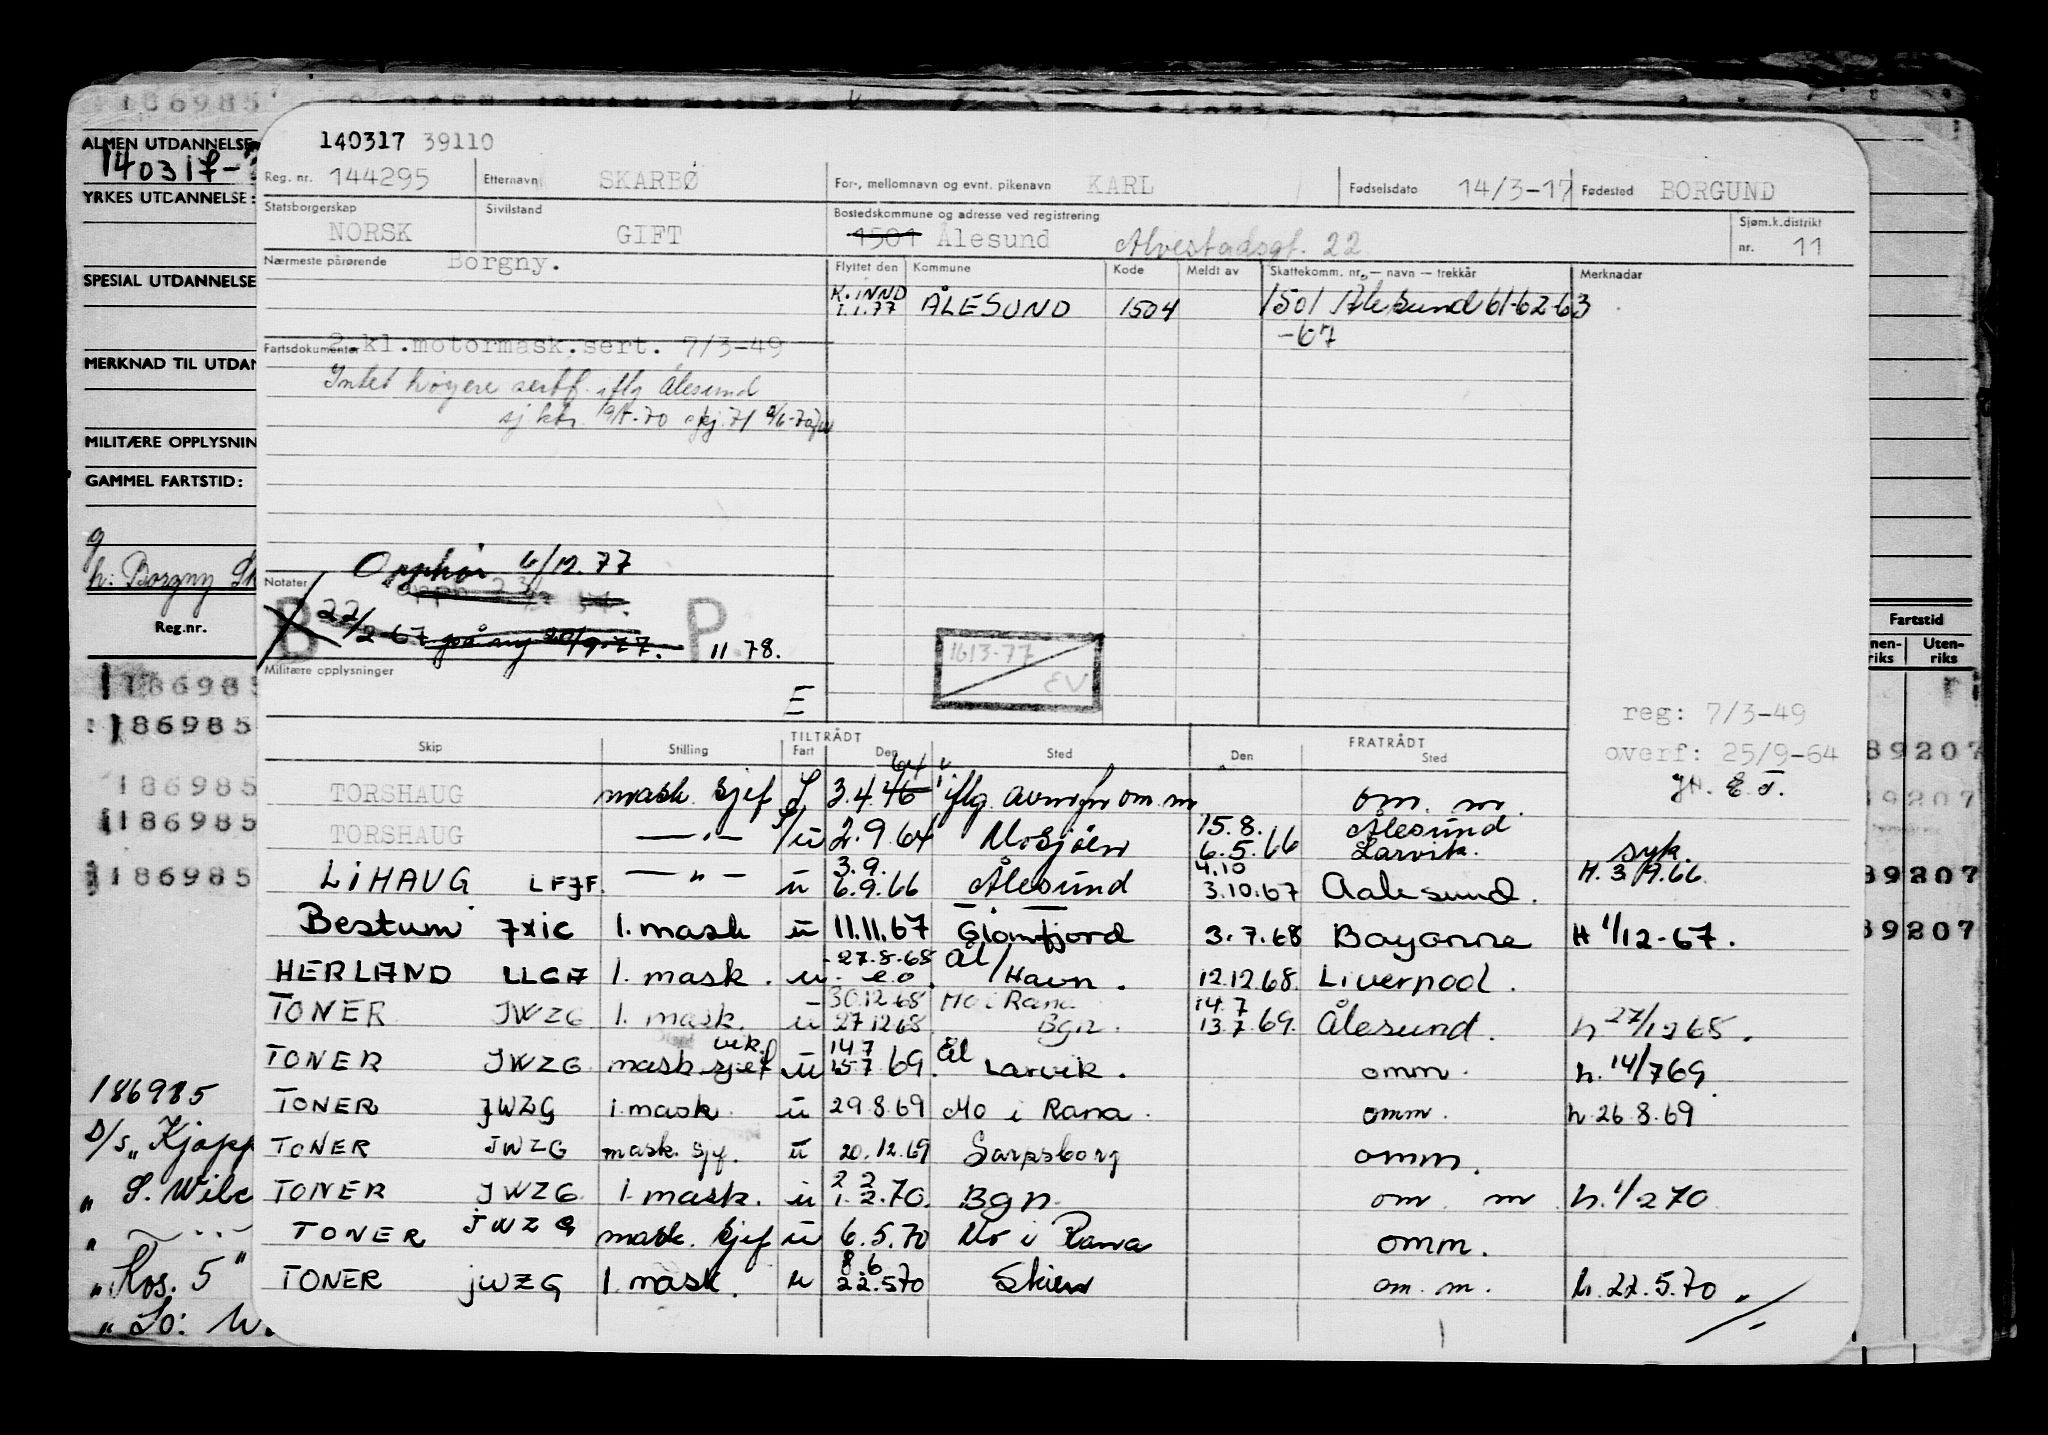 186985
ALMEN UTDANNELSE
140317-
YRKES UTDANNELSE:
SPESIAL UTDANNELSE
MERKNAD TIL UTDAN
MILITÆRE OPPLYSNIN
GAMMEL FARTSTID:
g
h: Borgny Sk
Reg.nr.
186985
186985
186985
186985
186985
186985
D/s „Kjøpp
„ S. Wilc
„ — ... —
„Kos. 5"
140317 39110
Reg. nr. 144295 Etternavn SKARBØ For-, mellomnavn og evnt. pikenavn KARL Fødselsdato 14/3-17 Fødested BORGUND
Statsborgerskap NORSK Sivilstand GIFT Bostedskommune og adresse ved registrering 1501 Ålesund Alvestadsgt. 22 Sjøm.k.distrikt nr. 11
Nærmeste pårørende Borgny. Flyttet den Kommune Kode Meldt av Skattekomm. nr. — navn — trekkår Merknader
K. INND 1.1.77 ÅLESUND 1504 1501 Ålesund 61-62-63
-67
Fartsdokumenter 2.kl.motormask.sert. 7/3-49
Intet høyere sertf. iflg Ålesund
Opphør 6/12.77
Notater
B 22/2-67 på ny 20/9-77. P 11 78.
1613-77
EV
Militære opplysninger
E
reg: 7/3-49
overf: 25/9-64
Skip Stilling TILTRÅDT Fart Den Sted FRATRÅDT Den Sted
TORSHAUG mask. sjef 3.4.46 64 iflg. om. m
TORSHAUG —"— u 2.9.64 Mosjøen 15.8. 6.5.66 Ålesund Larvik. syk.
LIHAUG LFJF. —"— u 3.9. 6.9.66 Ålesund 4.10 3.10.67 Aalesund. H. 3/9.66
Bestum JXIC 1. mask u 11.11.67 Glomfjord 3.7.68 Bayonne H 1/12-67.
HERLAND LLGA 1. mask. u 27.8.68 e.o. Ål/Havn. 12.12.68. Liverpool.
TONER JWZG 1. mask. u 30.12.68 27.12.68. Mo i Rana Bgn. 14.7 13.7.69. Ålesund. h 27/12 68.
TONER JWZG vik. mask.sjef u 14.7 15.7.69. Ål Larvik. omm. h. 14/7 69
TONER JWZG 1. mask. u 29.8.69 Mo i Rana. omm. h. 26.8.69
TONER JWZG mask. sjef. u 20.12.69 Sarpsborg omm.
TONER JWZG 1. mask. u 2 2 1.2.70. Bgn. om m h. 1/2 70
TONER JWZG mask. sjef u 6.5.70 Mo i Rana omm.
TONER JWZG 1. mask. u 8 6 22.5.70 Skien om. m. h. 22.5.70.
Fartstid
Innen-riks Uten-riks
89207
89207
89207
89207